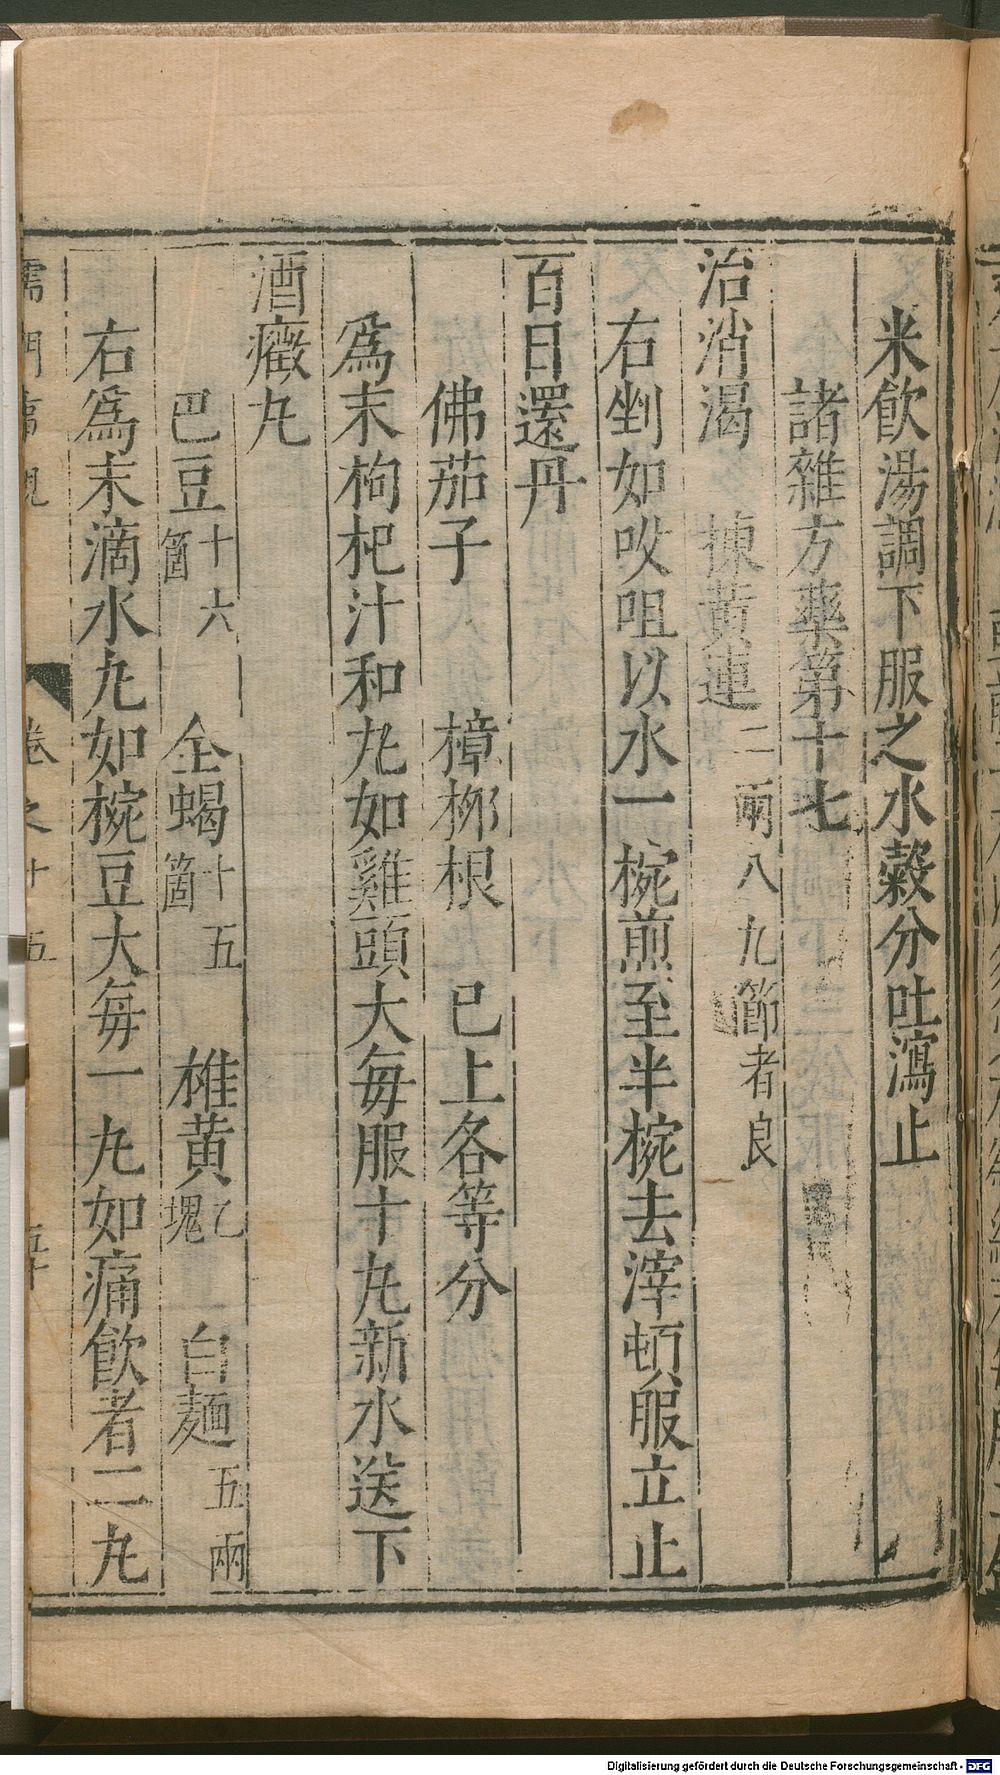 米飲湯調下服之水穀分吐瀉止
諸雜方藥第十七
治消渴 揀黃連二兩八九節者良
右剉如㕮咀以水一椀煎至半椀去滓頓服立止
百日還丹
佛茄子 樟柳根 已上各等分
爲末枸杞汁和丸如雞頭大每服十丸新水送下
酒癥丸
巴豆十六箇 全蝎十五箇 雄黃乙塊 白麵五兩
右爲末滴水丸如豌豆大每一丸如痛飲者二丸
儒門事親 卷之十五 五十
Digitalisierung gefördert durch die Deutsche Forschungsgemeinschaft - DFG